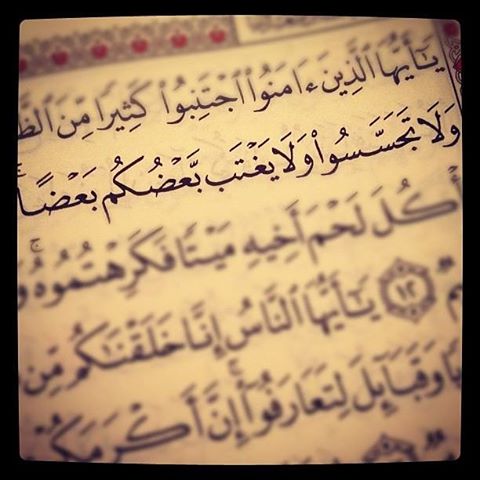 يَٰٓأَيُّهَا ٱلَّذِينَ ءَامَنُوا۟ ٱجْتَنِبُوا۟ كَثِيرًا مِّنَ
وَلَا تَجَسَّسُوا۟ وَلَا يَغْتَب بَّعْضُكُم بَعْضًا ۚ
أْكُلَ لَحْمَ أَخِيهِ مَيْتًا فَكَرِهْتُمُوهُ ۚ
١٢ يَٰٓأَيُّهَا ٱلنَّاسُ إِنَّا خَلَقْنَٰكُم مِّن
وَقَبَآئِلَ لِتَعَارَفُوٓا۟ ۚ إِنَّ أَكْرَمَكُمْ